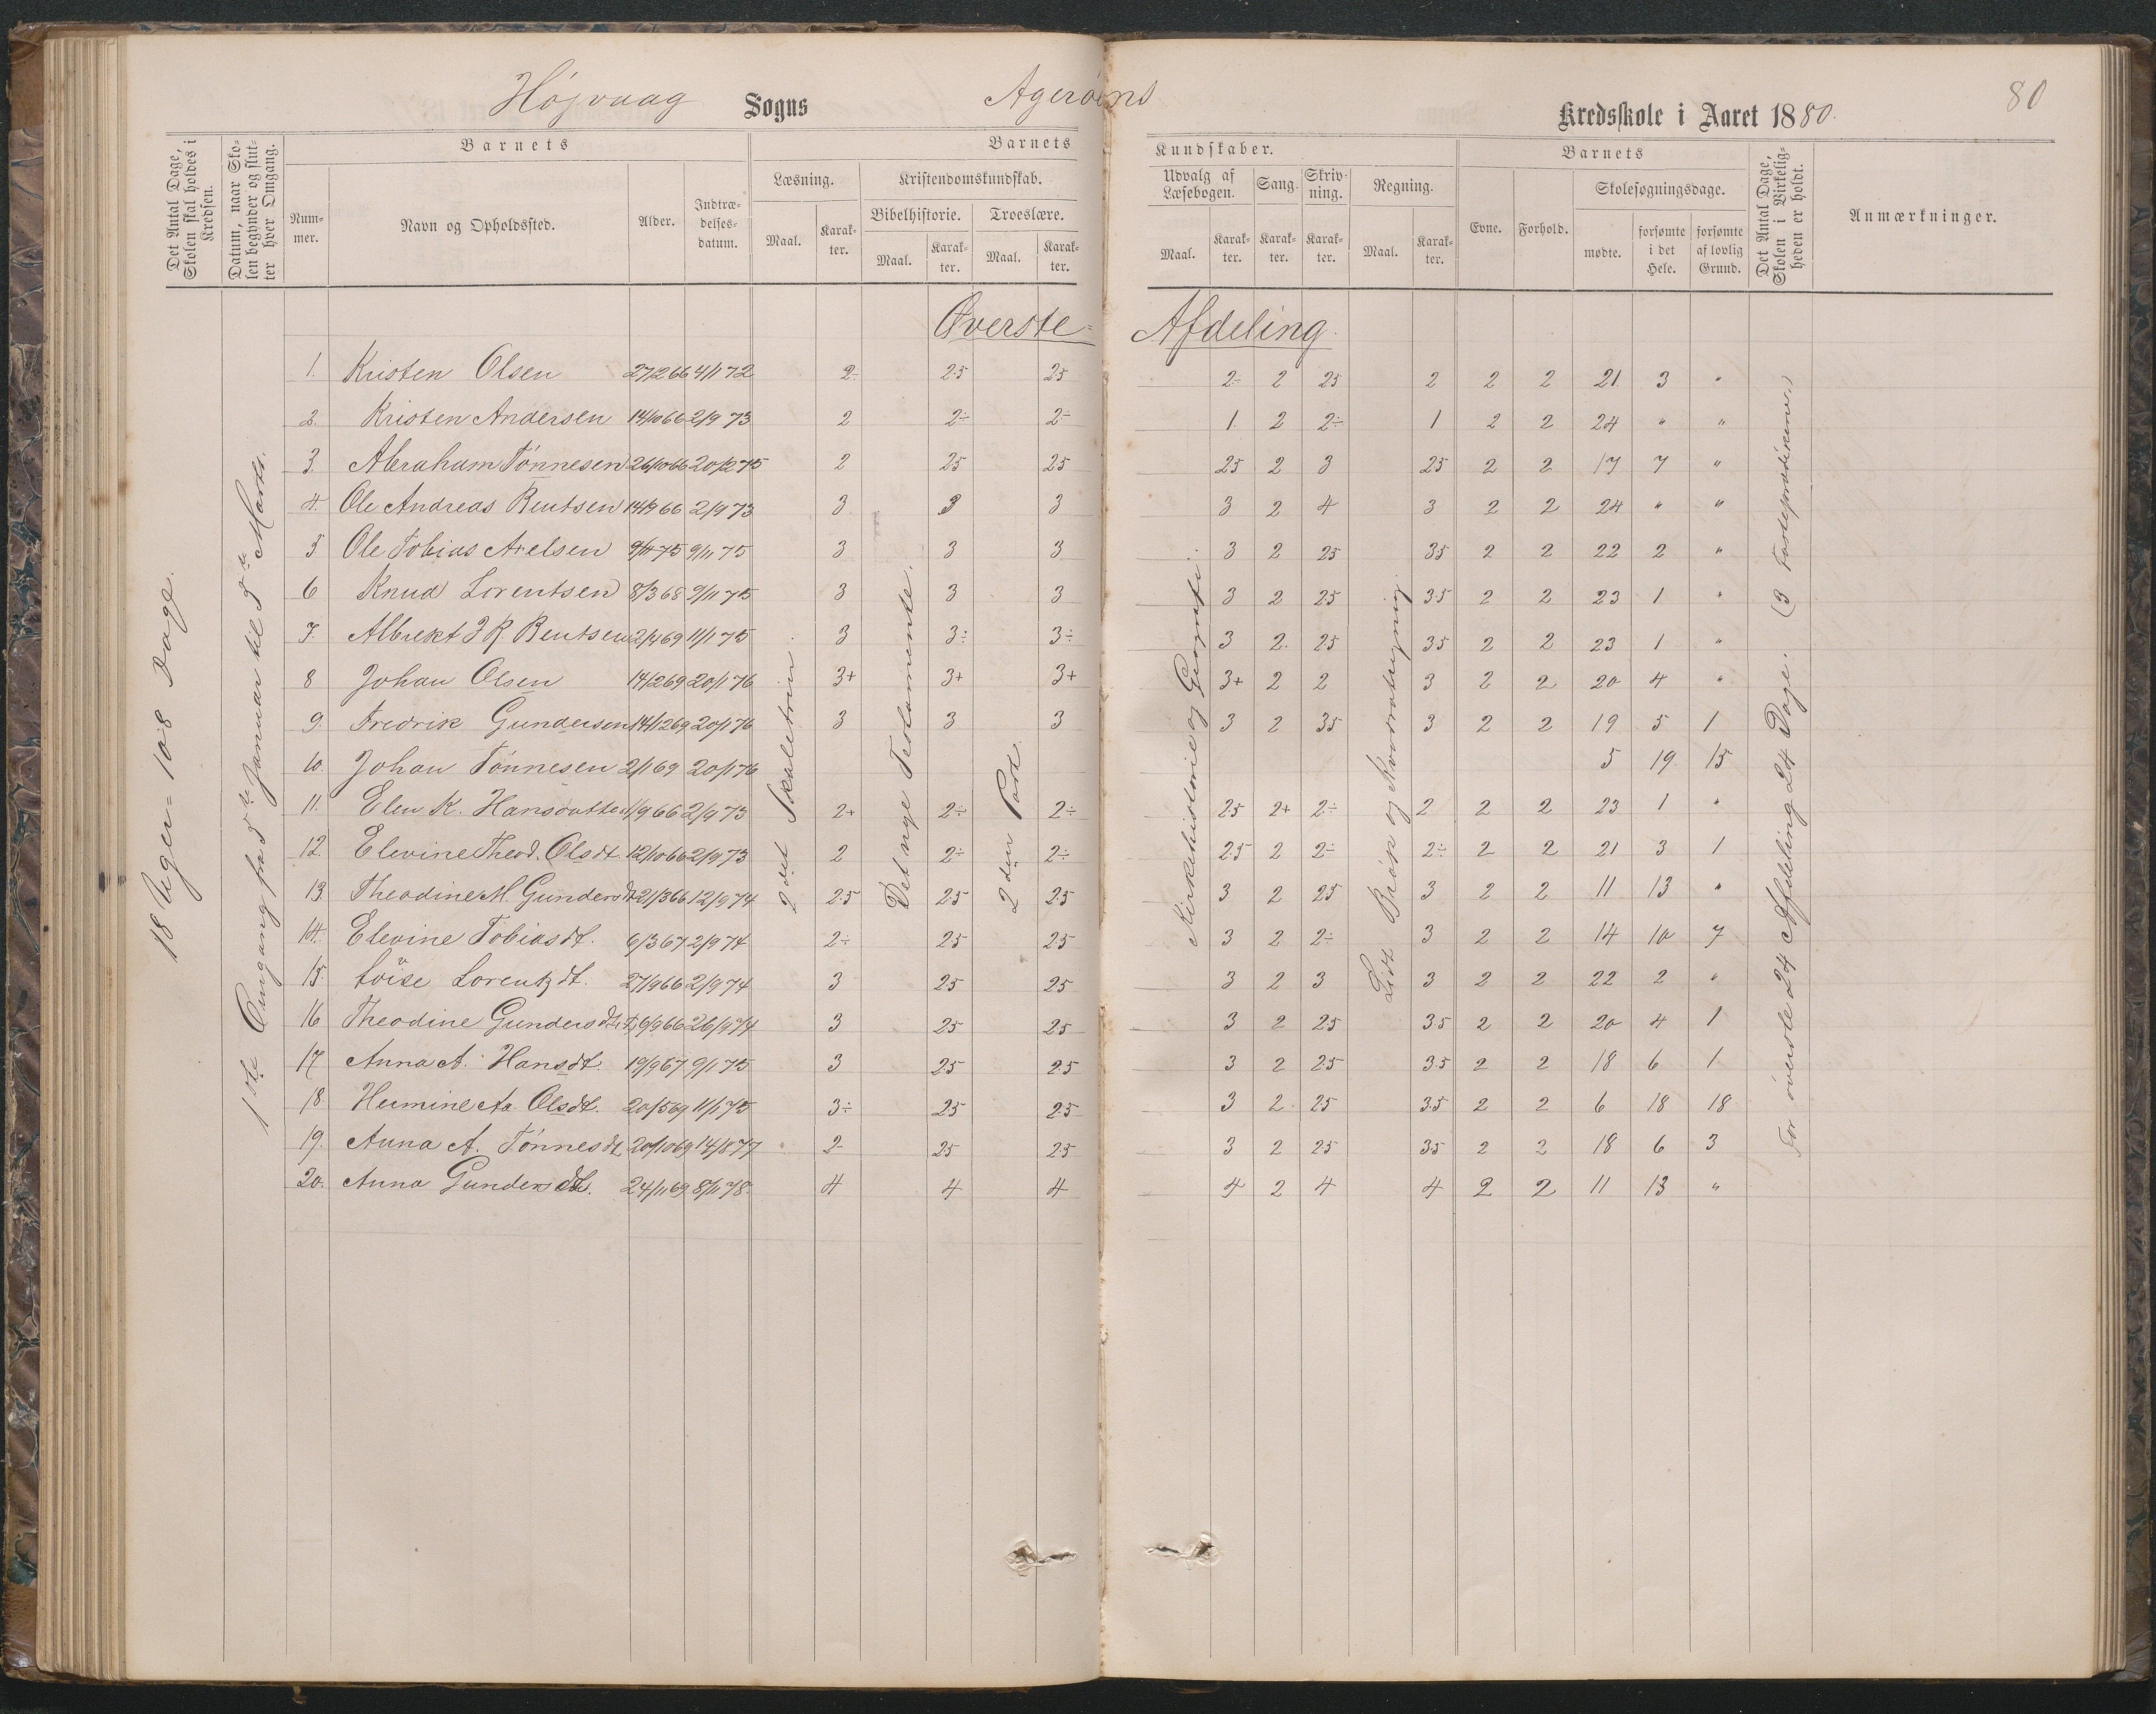 Højvaag Sogns Agerøens Kredsskole i Aaret 1880.
80
Det Antal Dage, Skolen skal holdes i Kredsen.
Datum, naar Skolen begynder og slutter hver Omgang.
Barnets
Nummer.
Navn og Opholdssted.
Alder.
Indtrædelsesdatum.
Barnets Kundskaber.
Læsning.
Maal.
Karakter.
Kristendomskundskab.
Bibelhistorie.
Maal.
Karakter.
Troeslære.
Maal.
Karakter.
Udvalg af Læsebogen.
Maal.
Karakter.
Sang.
Karakter.
Skrivning.
Karakter.
Regning.
Maal.
Karakter.
Barnets
Evne.
Forhold.
Skolesøgningsdage.
mødte.
forsømte i det Hele.
forsømte af lovlig Grund.
Det Antal Dage, Skolen i Virkeligheden er holdt.
Anmærkninger.
Øverste Afdeling.
18 Uger = 108 Dage.
1ste Omgang fra 5te Januar til 5te Marts.
2det Skoletrin.
Det nye Testamente.
2den Part.
Kirkehistorie og Geografi.
Lidt Brøk og Kvadratregning.
For øverste Afdeling 24 Dage.
1. Kristen Olsen 27/2 66 4/1 72 2÷ 2.5 25 2÷ 2 25 2 2 2 21 3 "
2. Kristen Andersen 14/10 66 2/9 73 2 2÷ 2÷ 1. 2 2÷ 1 2 2 24 " "
3. Abraham Tønnesen 26/10 66 20/12 75 2 25 25 25 2 3 25 2 2 17 7 "
4. Ole Andreas Bentsen 14/9 66 2/9 73 3 3 3 3 2 4 3 2 2 24 " "
5 Ole Tobias Axelsen 9/11 75 9/11 75 3 3 3 3 2 25 35 2 2 22 2 "
6 Knud Lorentsen 8/3 68 9/11 75 3 3 3 3 2 25 3.5 2 2 23 1 "
7. Albrekt J R. Bentsen 2/4 69 11/1 75 3 3÷ 3÷ 3 2. 25 35 2 2 23 1 "
8 Johan Olsen 14/2 69 20/1 76 3+ 3+ 3+ 3+ 2 2 3 2 2 20 4 "
9. Fredrik Gundersen 14/12 69 20/1 76 3 3 3 3 2 35 3 2 2 19 5 1
10. Johan Tønnesen 2/1 69 20/1 76 5 19 15
11. Elen K. Hansdatter 1/9 66 2/9 73 2+ 2÷ 2÷ 2.5 2+ 2÷ 2 2 2 23 1 "
12. Elevine Theod. Olsdt. 12/10 66 2/9 73 2 2÷ 2÷ 2.5 2 2÷ 2÷ 2 2 21 3 1
13. Theodine M. Gundersdt. 21/3 66 12/9 74 2.5 2.5 2.5 3 2 25 3 2 2 11 13 "
14. Elevine Tobiasdt. 6/3 67 2/9 74 2÷ 25 25 3 2 2÷ 3 2 2 14 10 7
15. Loise Lorentzdt. 27/9 66 2/9 74 3 25 25 3 2 3 3 2 2 22 2 "
16 Theodine Gundersdt. 6/9 66 26/9 74 3 25 25 3 2 2.5 3.5 2 2 20 4 1
17. Anna A. Hansdt. 19/9 67 9/1 75 3 25 2.5 3 2 25 3.5 2 2 18 6 1
18. Hermine Aa. Olsdt. 20/5 69 11/1 75 3÷ 25 25 3 2 25 3.5 2 2 6 18 18
19. Anna A. Tønnesdt. 20/10 69 14/8 77 2÷ 25 25 3 2 25 35 2 2 18 6 3
20. Anna Gundersdt. 24/11 69 8/11 78. 4 4 4 4 2 4 4 2 2 11 13 "